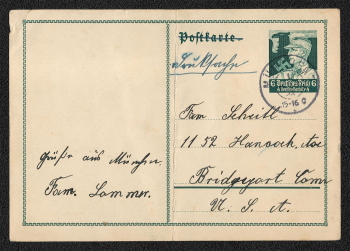 Postkarte
Drucksache
6 Deutsches Reich 6
15-16
Fam Scheitl
1152 Hancock Ave
Bridgeport Conn
U. S. A.
Grüße aus München
Fam. Sommer.